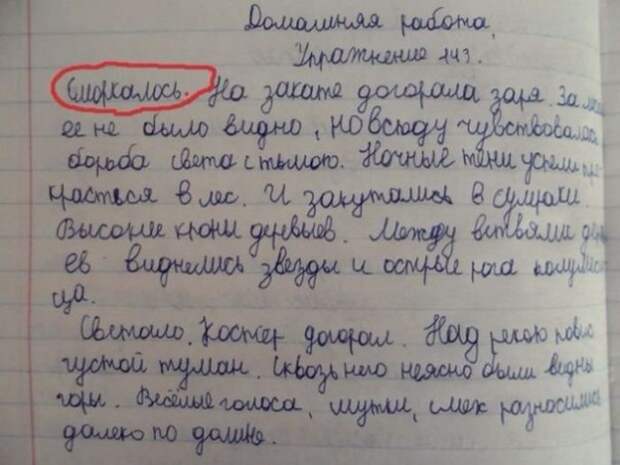 Домашняя работа.
Упражнение 143.
Сморкалось. На закате догорала заря. За
ее не было видно, но всюду чувствовалас
борьба света с тьмою. Ночные тени успели про
красться в лес. И закутались в сумраки.
Высокие кроны деревьев. Между ветвями дер
ев виднелись звезды и острые рога полумеся
ца.
Светало. Костер догорал. Над рекою повис
густой туман. Сквозь него неясно были видны
горы. Весёлые голоса, шутки, смех разносились
далеко по долине.